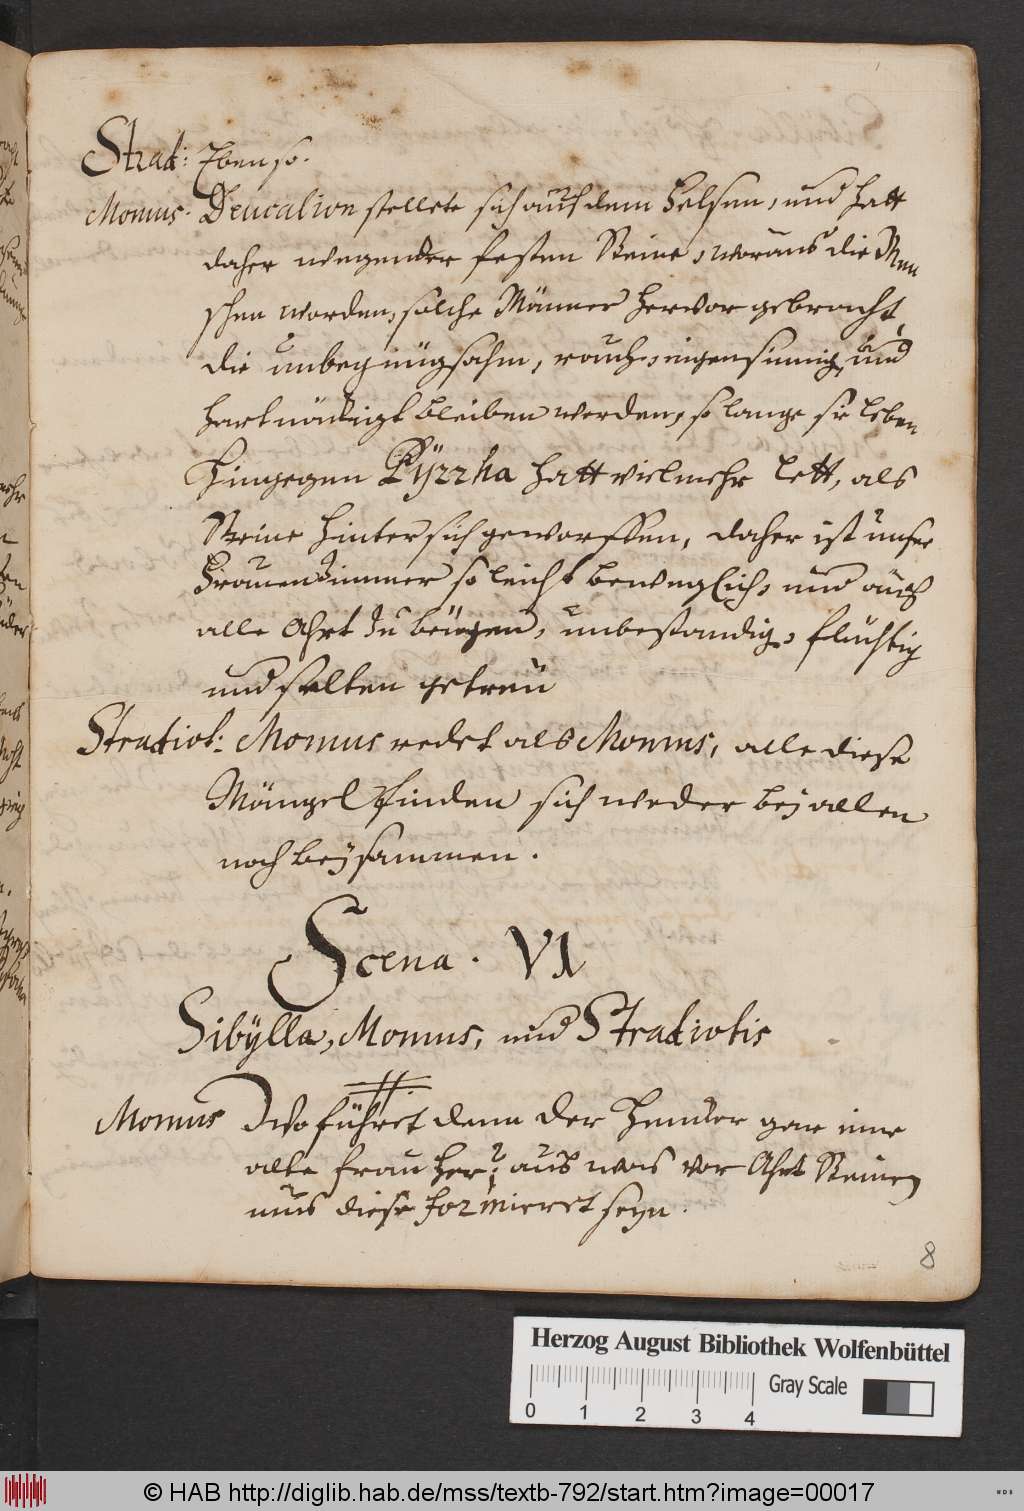 Strat: Ebenso.
Momus. Deucalion stellete sich auf dem Felsen, und hatt
daher wegen der festen Steine, woraus die Men
schen worden, solche Männer hervor gebracht,
die unbegnügsahm, rauch, eigensinnig, und
hartnäckigt bleiben werden, so lange sie leben
Hingegen Pÿrrha hatt vielmehr lett, als
Steine hinter sich geworffen, daher ist unser
Frauenzimmer so leicht beweglich, und auf
alle Ahrt zu beügen, unbestandig, flüchtig
und selten getreu
Stratiot: Momus redet als Momus, alle diese
Mängel finden sich weder bej allen
noch beÿsammen.
Scena. VI
Sibÿlla, Momus, und Stratiotis
Momus Wo führet denn der Hencker gar eine
alte frau her? aus was vor Ahrt Steinen
mus diese formieret seyn.
8
Herzog August Bibliothek Wolfenbüttel
Gray Scale
0 1 2 3 4
© HAB http://diglib.hab.de/mss/textb-792/start.htm?image=00017